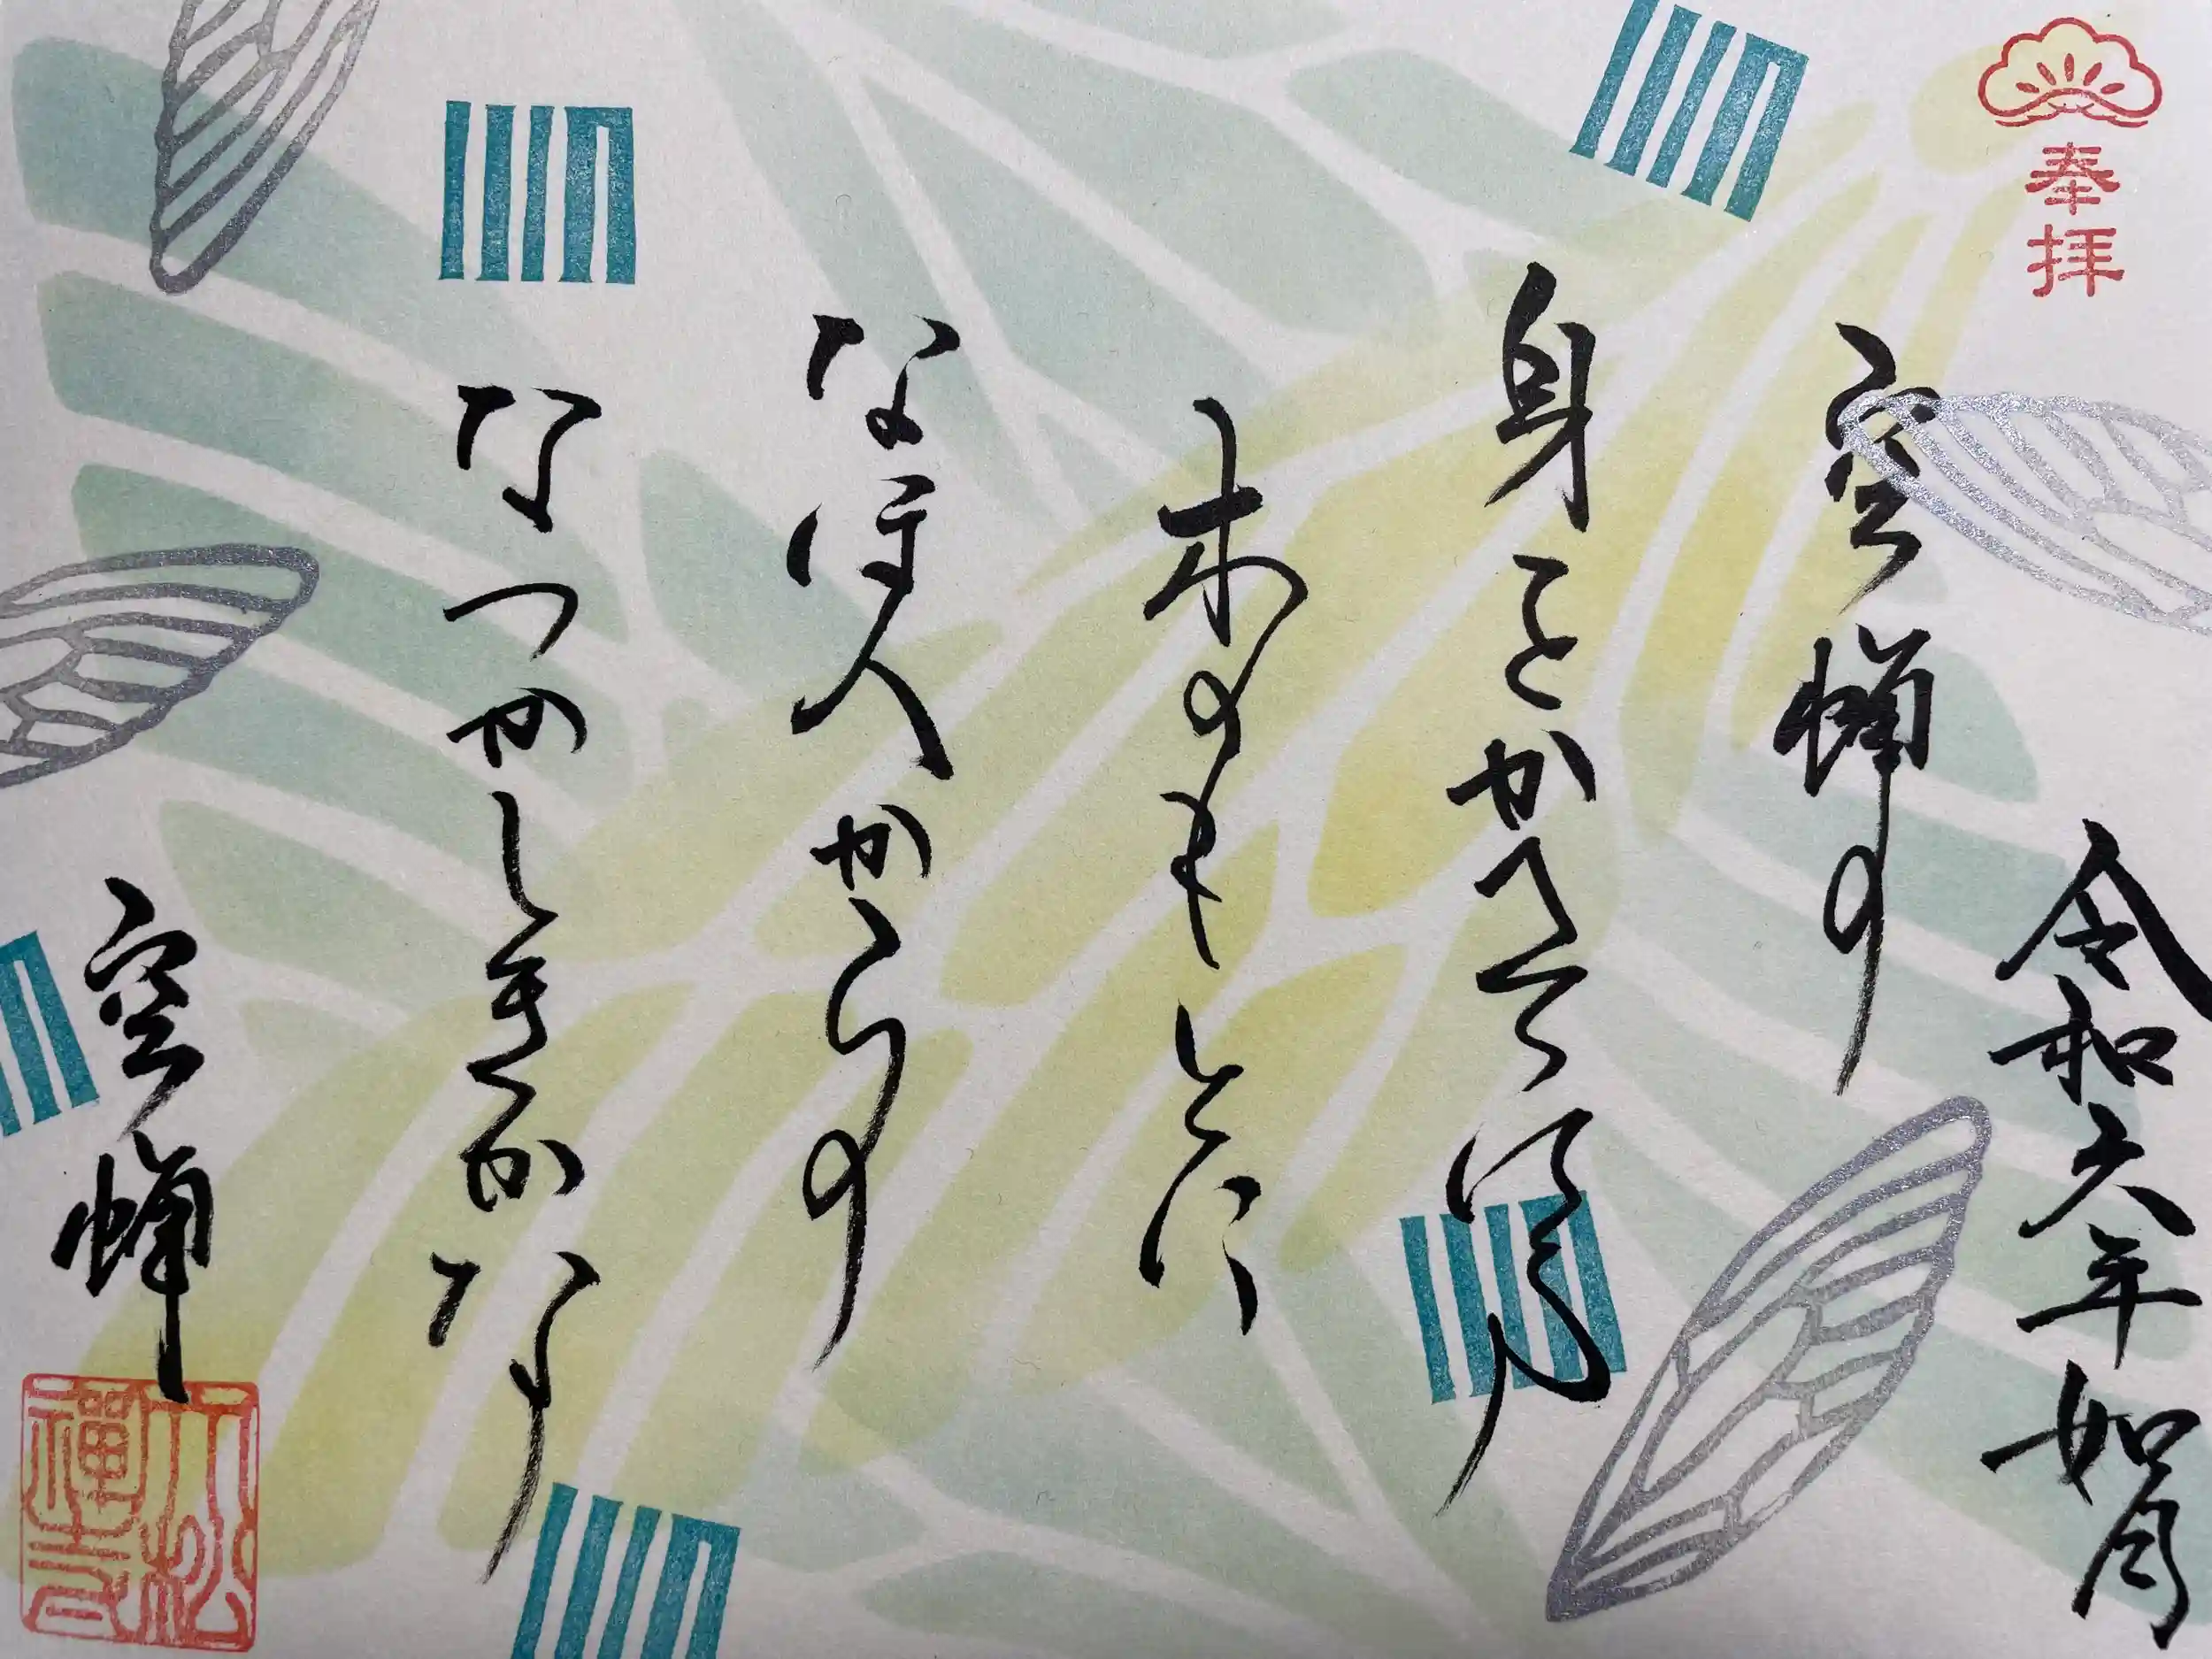 奉拝
令和六年如月
空蝉の
身をかへてける
木のもとに
なほ人からの
なつかしきかな
空蝉
松
禅寺